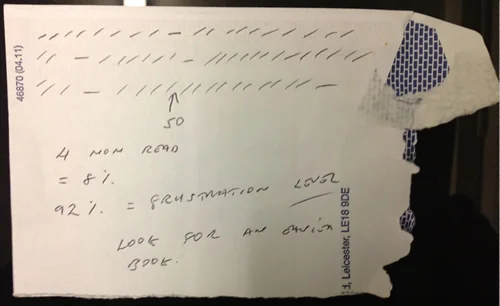 46870 (04.11)
50
4 NON READ
= 8%
92% = FRUSTRATION LEVEL
LOOK FOR AN EASIER
BOOK.
d, Leicester, LE18 9DE